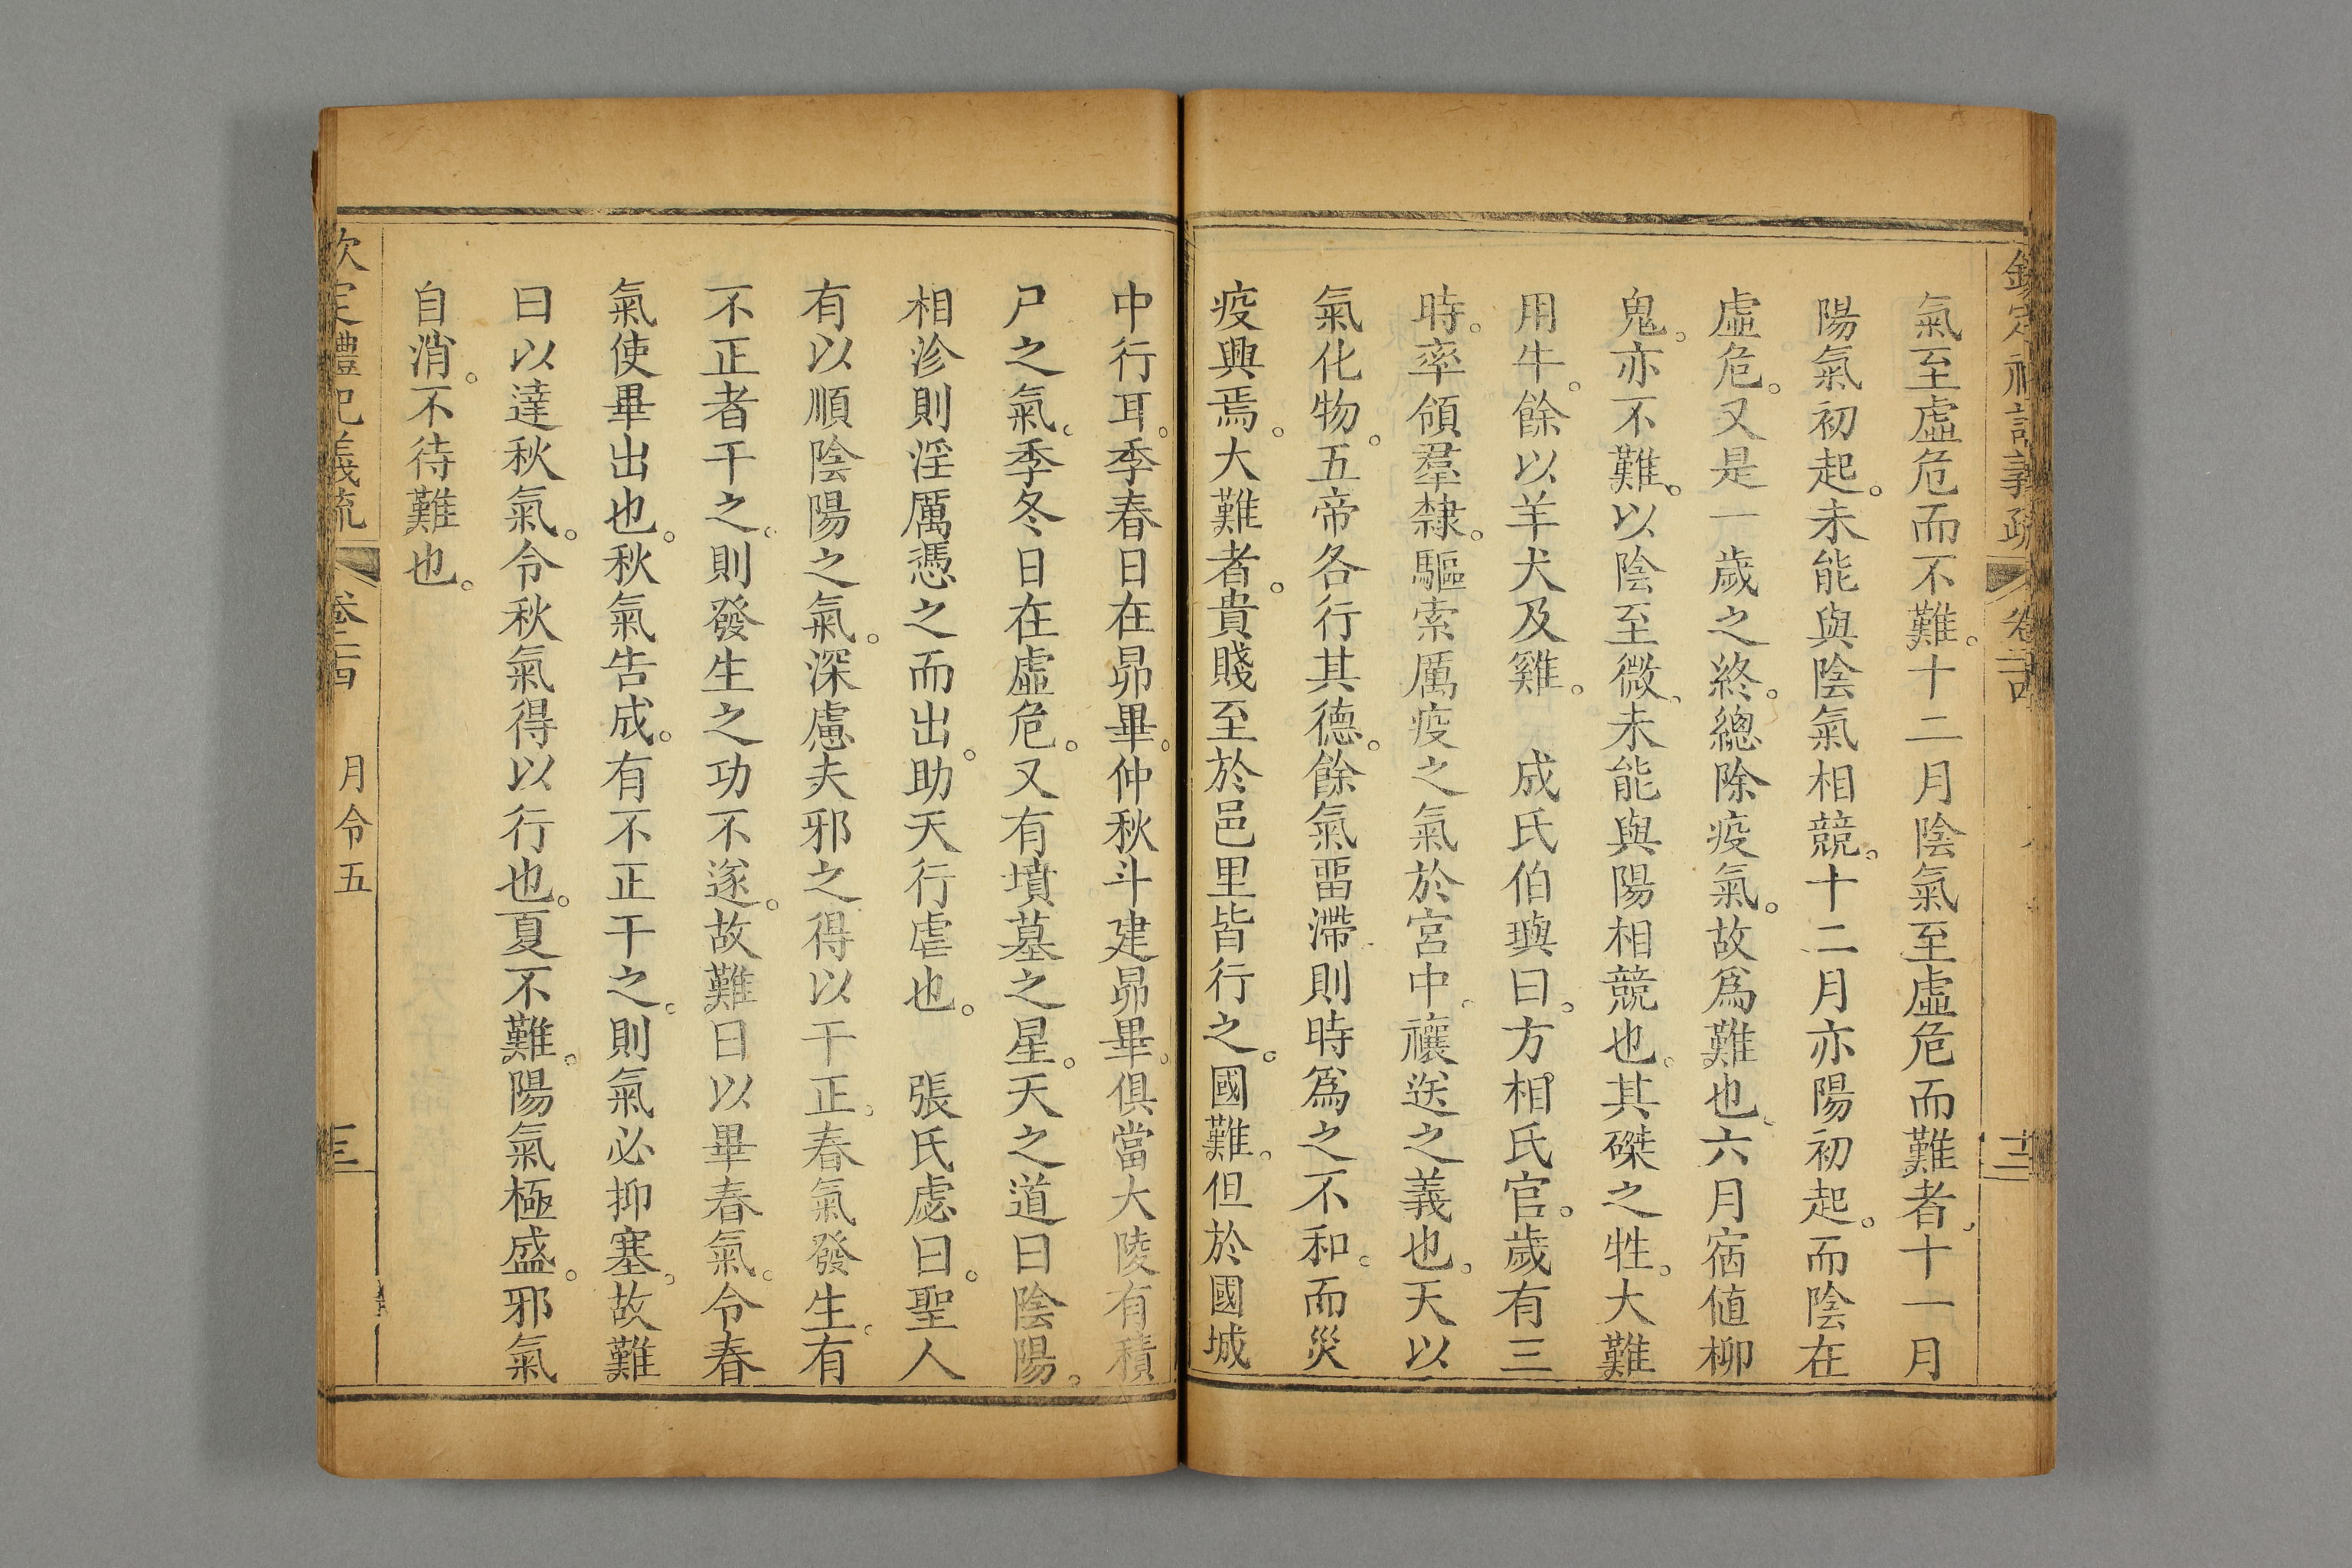 欽定禮記義疏 卷二十四
氣至虛危而不難。十二月陰氣至虛危而難者、十一月
陽氣初起。未能與陰氣相競。十二月亦陽初起。而陰在
虛危。又是一歲之終。總除疫氣。故爲難也、六月宿值柳
鬼。亦不難。以陰至微、未能與陽相競也。其磔之牲。大難
用牛。餘以羊犬及雞。 成氏伯璵曰。方相氏官。歲有三
時。率領羣隸。驅索厲疫之氣於宮中。禳送之義也。天以
氣化物。五帝各行其德。餘氣畱滯、則時爲之不和。而災
疫興焉。大難者。貴賤至於邑里皆行之。國難。但於國城
中行耳。季春日在昴畢。仲秋斗建昴畢。俱當大陵有積
尸之氣。季冬日在虛危。又有墳墓之星。天之道曰陰陽。
相沴則淫厲憑之而出。助天行虐也。 張氏虙曰。聖人
有以順陰陽之氣。深慮夫邪之得以干正。春氣發生。有
不正者干之。則發生之功不遂。故難曰以畢春氣。令春
氣使畢出也。秋氣告成。有不正干之。則氣必抑塞。故難
曰以達秋氣。令秋氣得以行也。夏不難。陽氣極盛。邪氣
自消。不待難也。
欽定禮記義疏 卷二十四 月令五